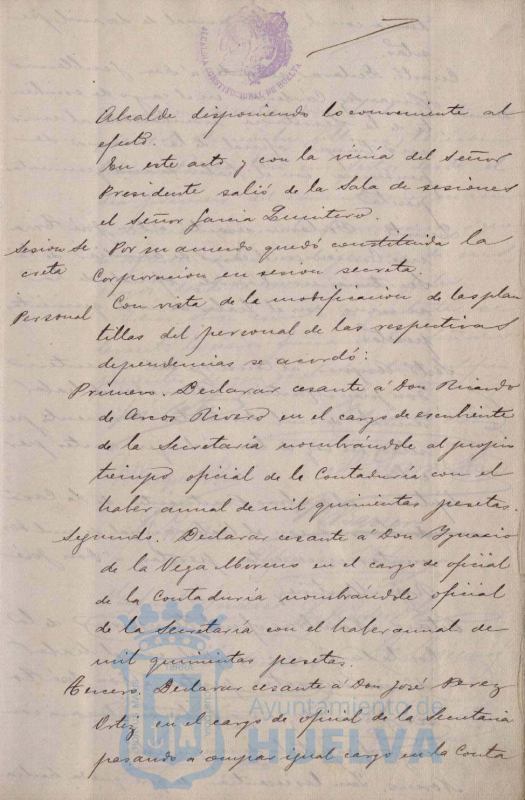 ALCALDIA CONSTITUCIONAL DE HUELVA
Alcalde disponiendo lo conveniente al
efecto.
En este acto y con la venia del Señor
Presidente salió de la Sala de sesiones
el Señor García Quintero.
Sesion Se
creta
Por su acuerdo quedó constituida la
Corporacion en sesion secreta.
Personal
Con vista de la modificacion de las plan
tillas del personal de las respectivas
dependencias se acordó:
Primero. Declarar cesante á Don Ricardo
de Arcos Rivero en el cargo de escribiente
de la Secretaría nombrándole al propio
tiempo oficial de la Contaduría con el
haber annal de mil quinientas pesetas.
Segundo. Declarar cesante á Don Ygnacio
de la Vega Moreno en el cargo de oficial
de la Contaduría nombrándole oficial
de la Secretaría con el haber annal de
mil quinientas pesetas.
Tercero. Declarar cesante á Don José Perez
Ortiz en el cargo de oficial de la Secretaria
pasando á ocupar igual cargo en la Conta
Ayuntamiento de
HUELVA